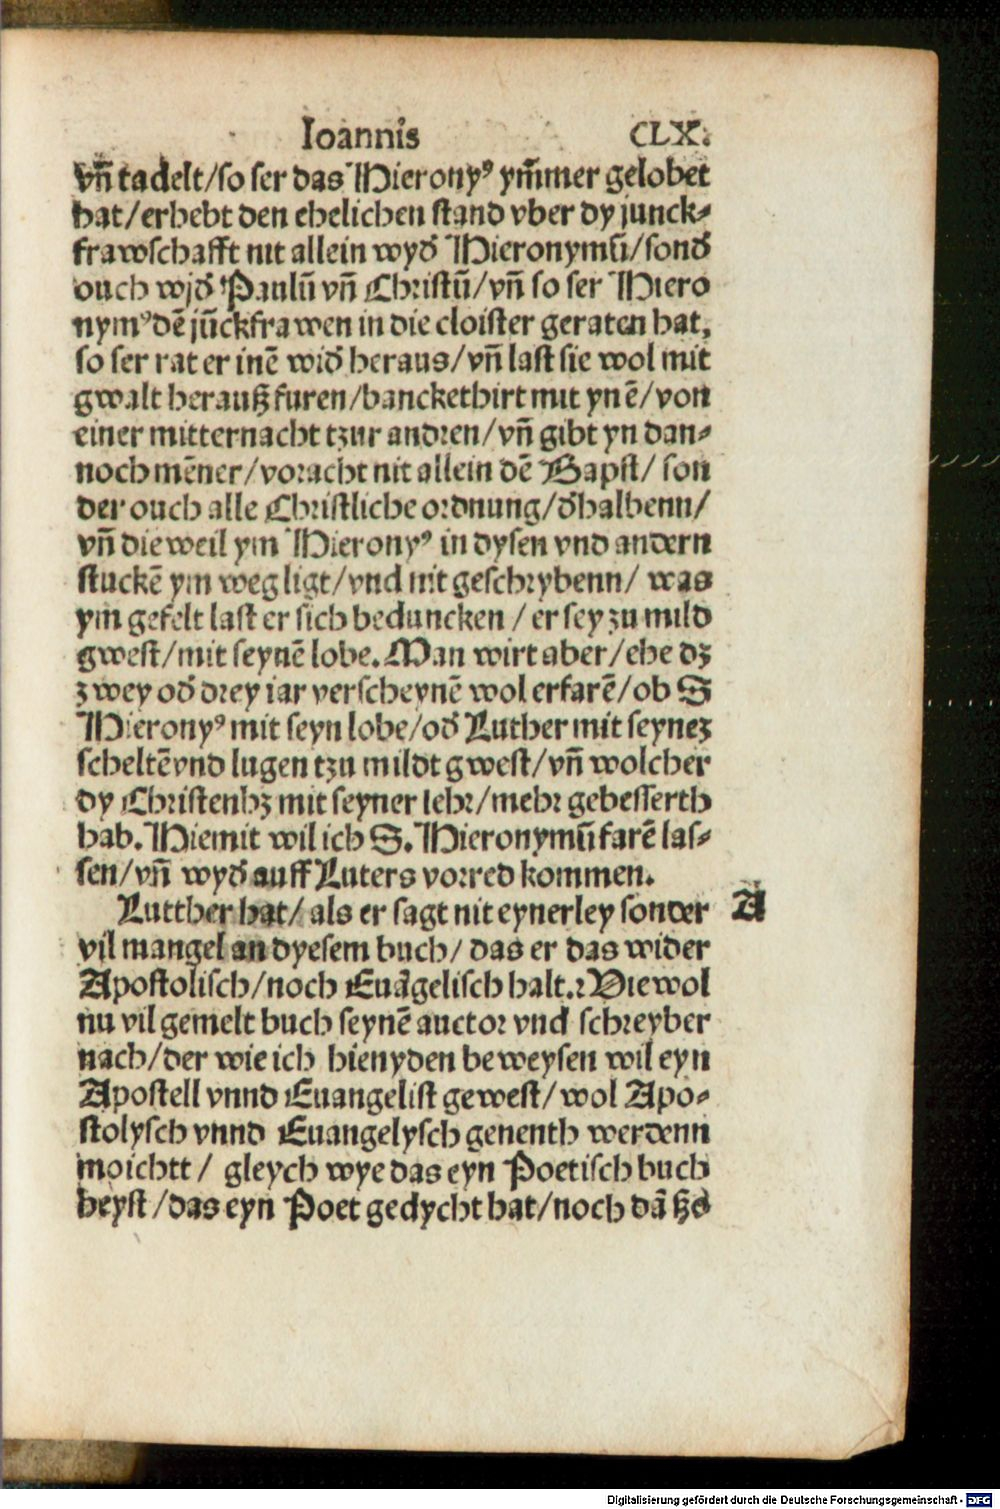 Ioannis CLX.
vn̄ tadelt/so ser das Hieronyꝰ ym̄mer gelobet
hat/erhebt den ehelichen stand vber dy junck⸗
frawschafft nit allein wyd̕ Hieronymū/sond̕
ouch wjd̕ Paulū vn̄ Christū/vn̄ so ser Hiero
nymꝰ dē jūckfrawen in die cloister geraten hat,
so ser rat er inē wid̕ heraus/vn̄ last sie wol mit
gwalt herauß furen/banckethirt mit ynē/von
einer mitternacht tzur andren/vn̄ gibt yn dan⸗
noch mēner/voracht nit allein dē Bapst/ son
der ouch alle Christliche ordnung/d̕halbenn/
vn̄ die weil ym Hieronyꝰ in dysen vnd andern
stuckē ym weg ligt/vnd nit geschrybenn/ was
ym gefelt last er sich beduncken / er sey zu mild
gwest/mit seynē lobe. Man wirt aber/ehe dz
zwey od̕ drey iar verscheynē wol erfarē/ob S
Hieronyꝰ mit seyn lobe/od̕ Luther mit seynez
scheltē vnd lugen tzu mildt gwest/vn̄ wolcher
dy Christenhz mit seyner lehr/mehr gebesserth
hab. Hiemit wil ich S. Hieronymū farē las⸗
sen/vn̄ wyd̕ auff Luters vorred kommen.
Lutther hat/ als er sagt nit eynerley sonder A
vil mangel an dyesem buch/ das er das wider
Apostolisch/noch Euāgelisch halt.ꝛ Wie wol
nu vil gemelt buch seynē auctor vnd schreyber
nach/der wie ich hienyden beweysen wil eyn
Apostell vnnd Euangelist gewest/ wol Apo⸗
stolysch vnnd Euangelysch genenth werdenn
moichtt / gleych wye das eyn Poetisch buch
heyst /das eyn Poet gedycht hat/noch dā
Digitalisierung gefördert durch die Deutsche Forschungsgemeinschaft - DFG